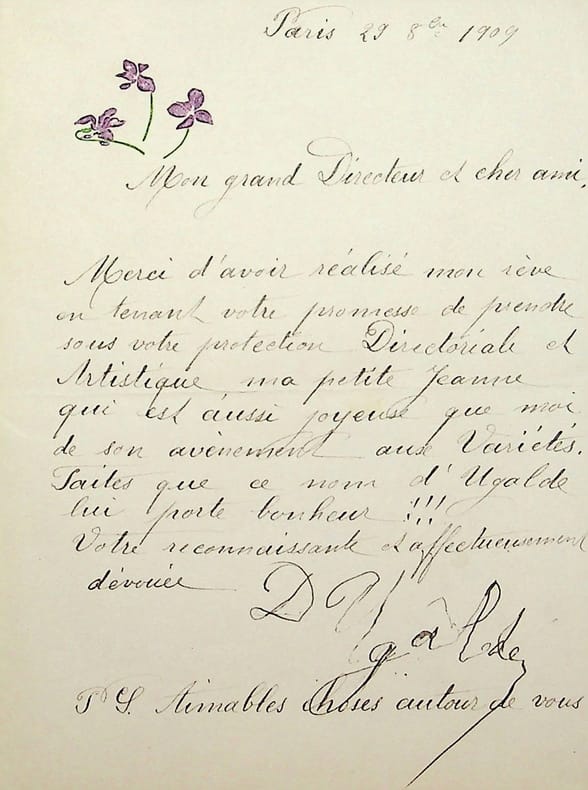 Paris 29 8bre 1909
Mon grand Directeur et cher ami,
Merci d'avoir réalisé mon rêve
en tenant votre promesse de prendre
sous votre protection Directoriale et
Artistique ma petite Jeanne
qui est aussi joyeuse que moi
de son avènement aux Variétés.
Faites que ce nom d'Ugalde
lui porte bonheur !!!
Votre reconnaissante et affectueusement
dévouée D Ugalde
PS. Aimables choses autour de vous